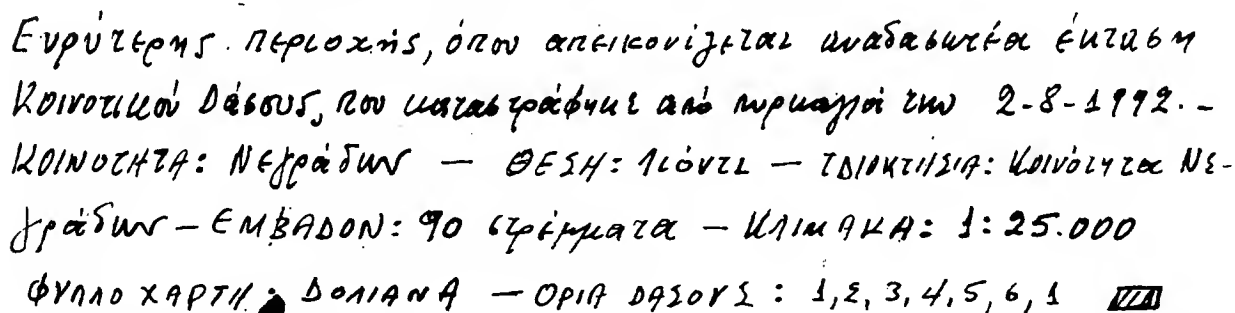 Ευρύτερης περιοχής, όπου απεικονίζεται αναδασωτέα έκταση
Κοινοτικού Δάσους, που καταστράφηκε από πυρκαγιά την 2-8-1992.-
ΚΟΙΝΟΤΗΤΑ: Νεγράδων — ΘΕΣΗ: Λιόντι — ΙΔΙΟΚΤΗΣΙΑ: Κοινότητα Νε-
γράδων — ΕΜΒΑΔΟΝ: 90 στρέμματα — ΚΛΙΜΑΚΑ: 1:25.000
ΦΥΛΛΟ ΧΑΡΤΗ: ΔΟΛΙΑΝΑ — ΟΡΙΑ ΔΑΣΟΥΣ: 1, 2, 3, 4, 5, 6, 1